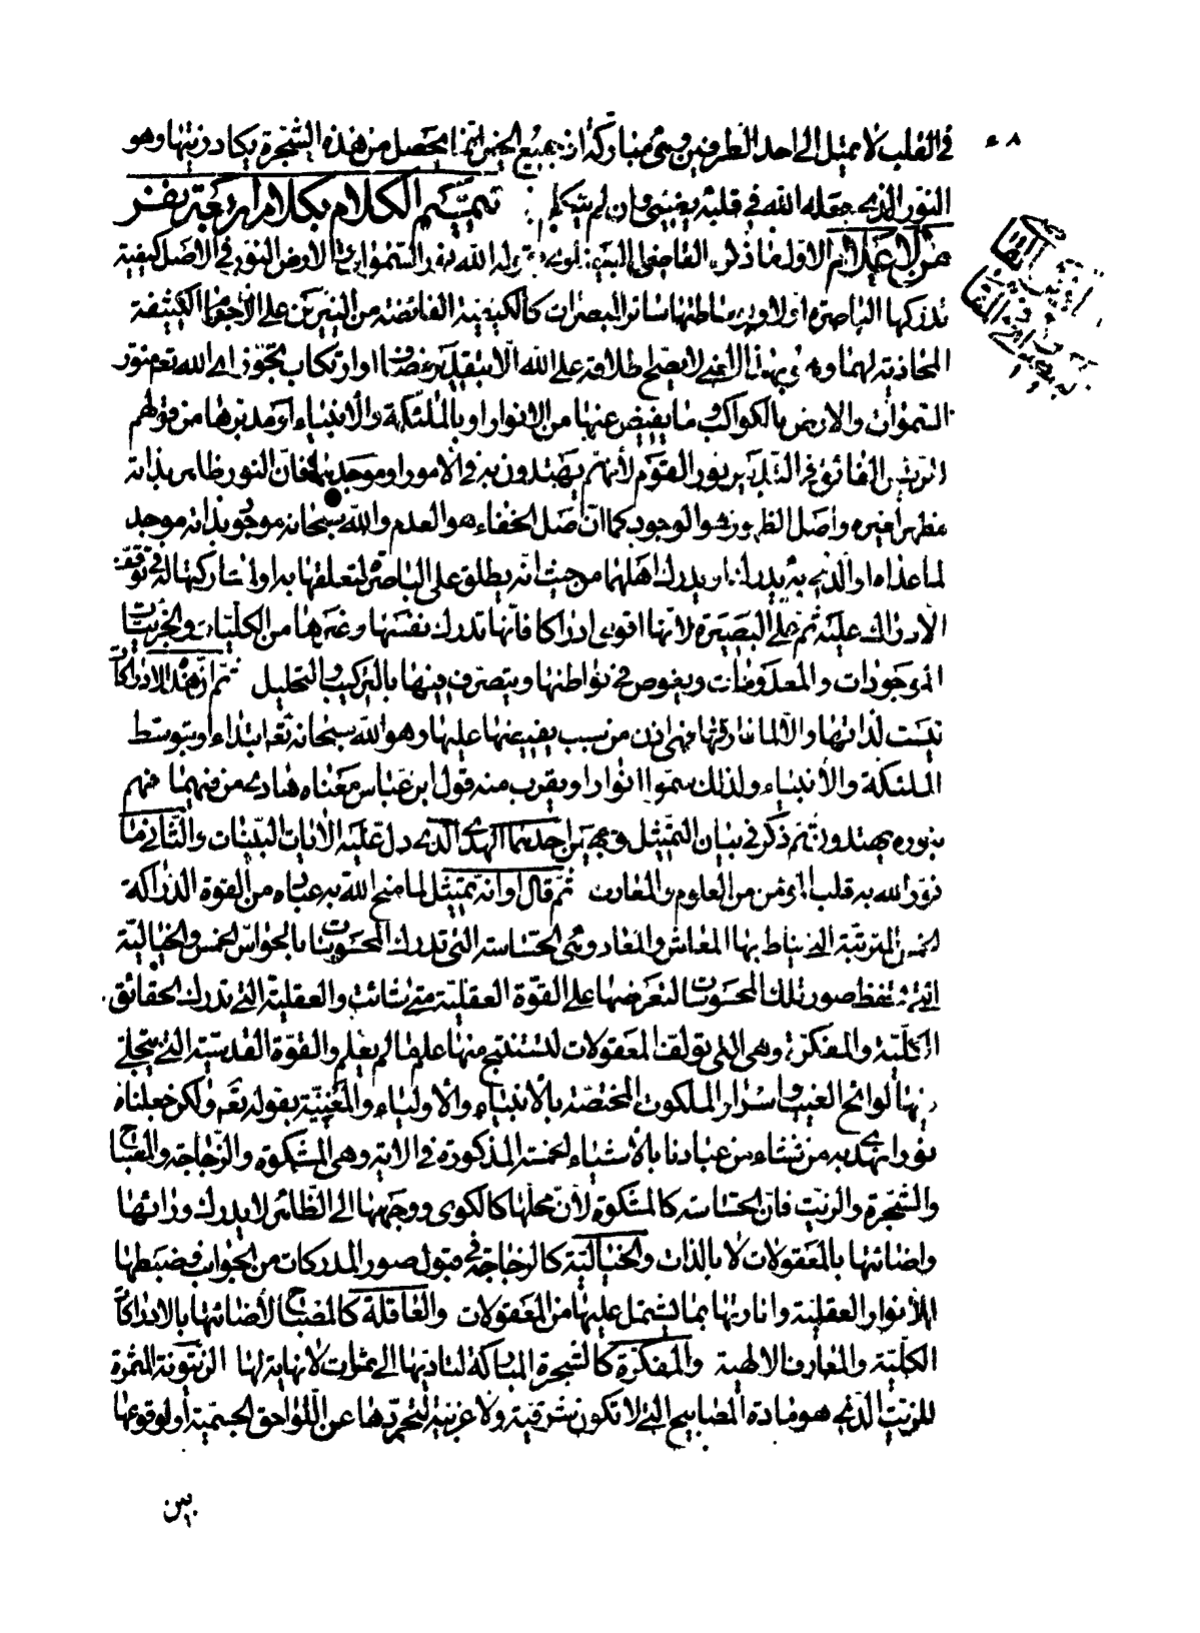 في القلب لا يميل الى احد الطرفين وهي مباركة اذ جميع الخير انما يحصل من هذه الشجرة يكاد زيتها وهو
النور الذي جعله الله في قلبه يضيء وان لم يتكلم تتميم الكلام بكلام اربعة نفر
من الاعلام الاول ما ذكره القاضي البيضاوي قوله الله نور السموات والارض النور في الاصل كيفية
تدركها الباصرة اولا وبوساطتها سائر المبصرات كالكيفية الفائضة من النيرين على الاجرام الكثيفة
المحاذية لهما وهو بهذا المعنى لا يصح اطلاقه على الله الا بتقدير مضاف او ارتكاب تجوز اى الله تعم منور
السموات والارض بالكواكب وما يفيض عنها من الانوار او بالملئكة والانبياء او مدبرها من قولهم
للرئيس الفائق في التدبير نور القوم لأنهم يهتدون به في الامور او موجدها فان النور ظاهر بذاته
مظهر لغيره واصل الظهور هو الوجود كما ان اصل الخفاء هو العدم والله سبحانه موجود بذاته موجد
لما عداه او الذي به يدرك او يدرك اهلها من حيث انه يطلق على الباصرة لتعلقها به او لمشاركتها له في توقف
الادراك عليه ثم على البصيرة لانها اقوى ادراكا فانها تدرك نفسها وغيرها من الكليات والجزئيات
الموجودات والمعدومات ويغوص في بواطنها ويتصرف فيها بالتركيب والتحليل ثم ان هذه الادراكات
ليست لذاتها والا لما فارقتها فهي اذن من سبب يفيضها عليها وهو الله سبحانه تعم ابتداء او بتوسط
الملئكة والأنبياء ولذلك سموا انوارا ويقرب منه قول ابن عباس معناه هادى من فيهما فهم
بنوره يهتدون ثم ذكر في بيان التمثيل وجهين احدهما الهدى الذي دل عليه الايات البينات والثاني ما
نور الله به قلب المؤمن من العلوم والمعارف ثم قال او انه تمثيل لما منح الله به عباده من القوة الدراكة
الخمس المترتبة التي يناط بها المعاش والمعاد وهي الحساسة التي تدرك المحسوسات بالحواس الخمس والخيالية
التي تحفظ صور تلك المحسوسات لتعرضها على القوة العقلية متى شائت والعقلية التي تدرك الحقائق
الكلية والمفكرة وهي التي تؤلف المعقولات لتستنتج منها علم ما لم يعلم والقوة القدسية التي يتجلى
فيها لوائح الغيب واسرار الملكوت المختصة بالأنبياء والأولياء والمعنية بقوله تعم ولكن جعلناه
نورا نهدى به من نشاء من عبادنا بالأشياء الخمسة المذكورة في الاية وهي المشكوة والزجاجة والمصباح
والشجرة والزيت فان الحساسة كالمشكوة لأن محلها كالكوى ووجهها الى الظاهر لا يدرك ورائها
واضائتها بالمعقولات لا بالذات والخيالية كالزجاجة في قبول صور المدركات من الجوانب وضبطها
للأنوار العقلية وانارتها بما يشتمل عليها من المعقولات والعاقلة كالمصباح لأضائتها بالادراكات
الكلية والمعارف الالهية والمفكرة كالشجرة المباركة لتاديتها الى ثمرات لا نهاية لها الزيتونة المثمرة
للزيت الذي هو مادة المصابيح التي لا تكون شرقية ولا غربية لتجردها عن اللواحق الجسمية او لوقوعها
بين